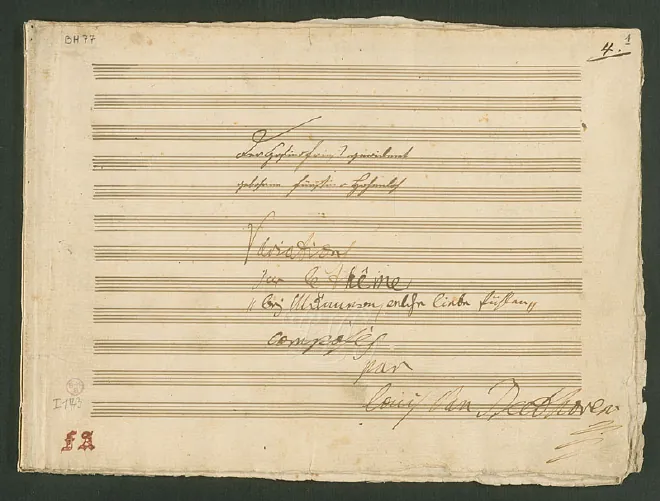 BH 77
4.
1
Der Gräfin gewidmet
gebohrne Fürstin Hohenloh
Variations
sur le thême
„bey Männern, welche liebe fühlen„
composées
par
Louis van Beethoven
I 143